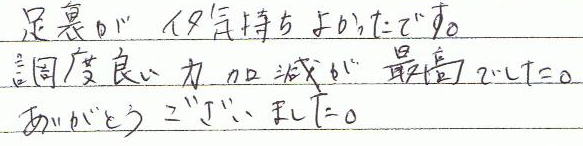 足裏が イタ気持ち よかったです。
調度良い 力加減が 最高でした。
ありがとう ございました。